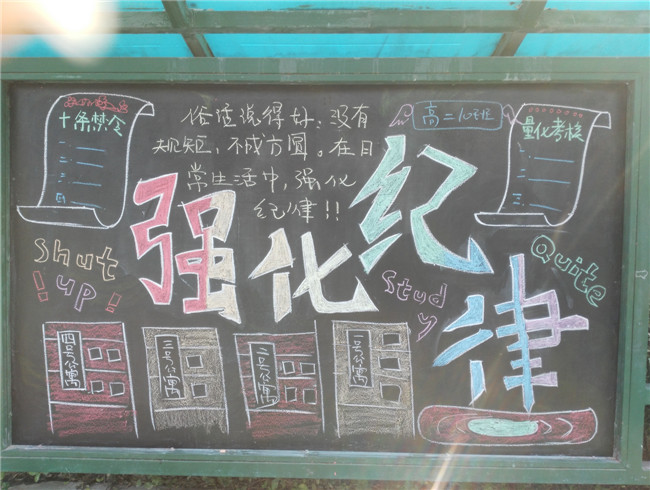 十条禁令
一、
二、
三、
四、
俗话说得好：没有
规矩，不成方圆。在日
常生活中，强化
纪律！！
高二10班
量化考核
一、
二、
三、
强化纪律
Shut
up!
Study
Quite
四号公寓
三号公寓
二号公寓
一号公寓